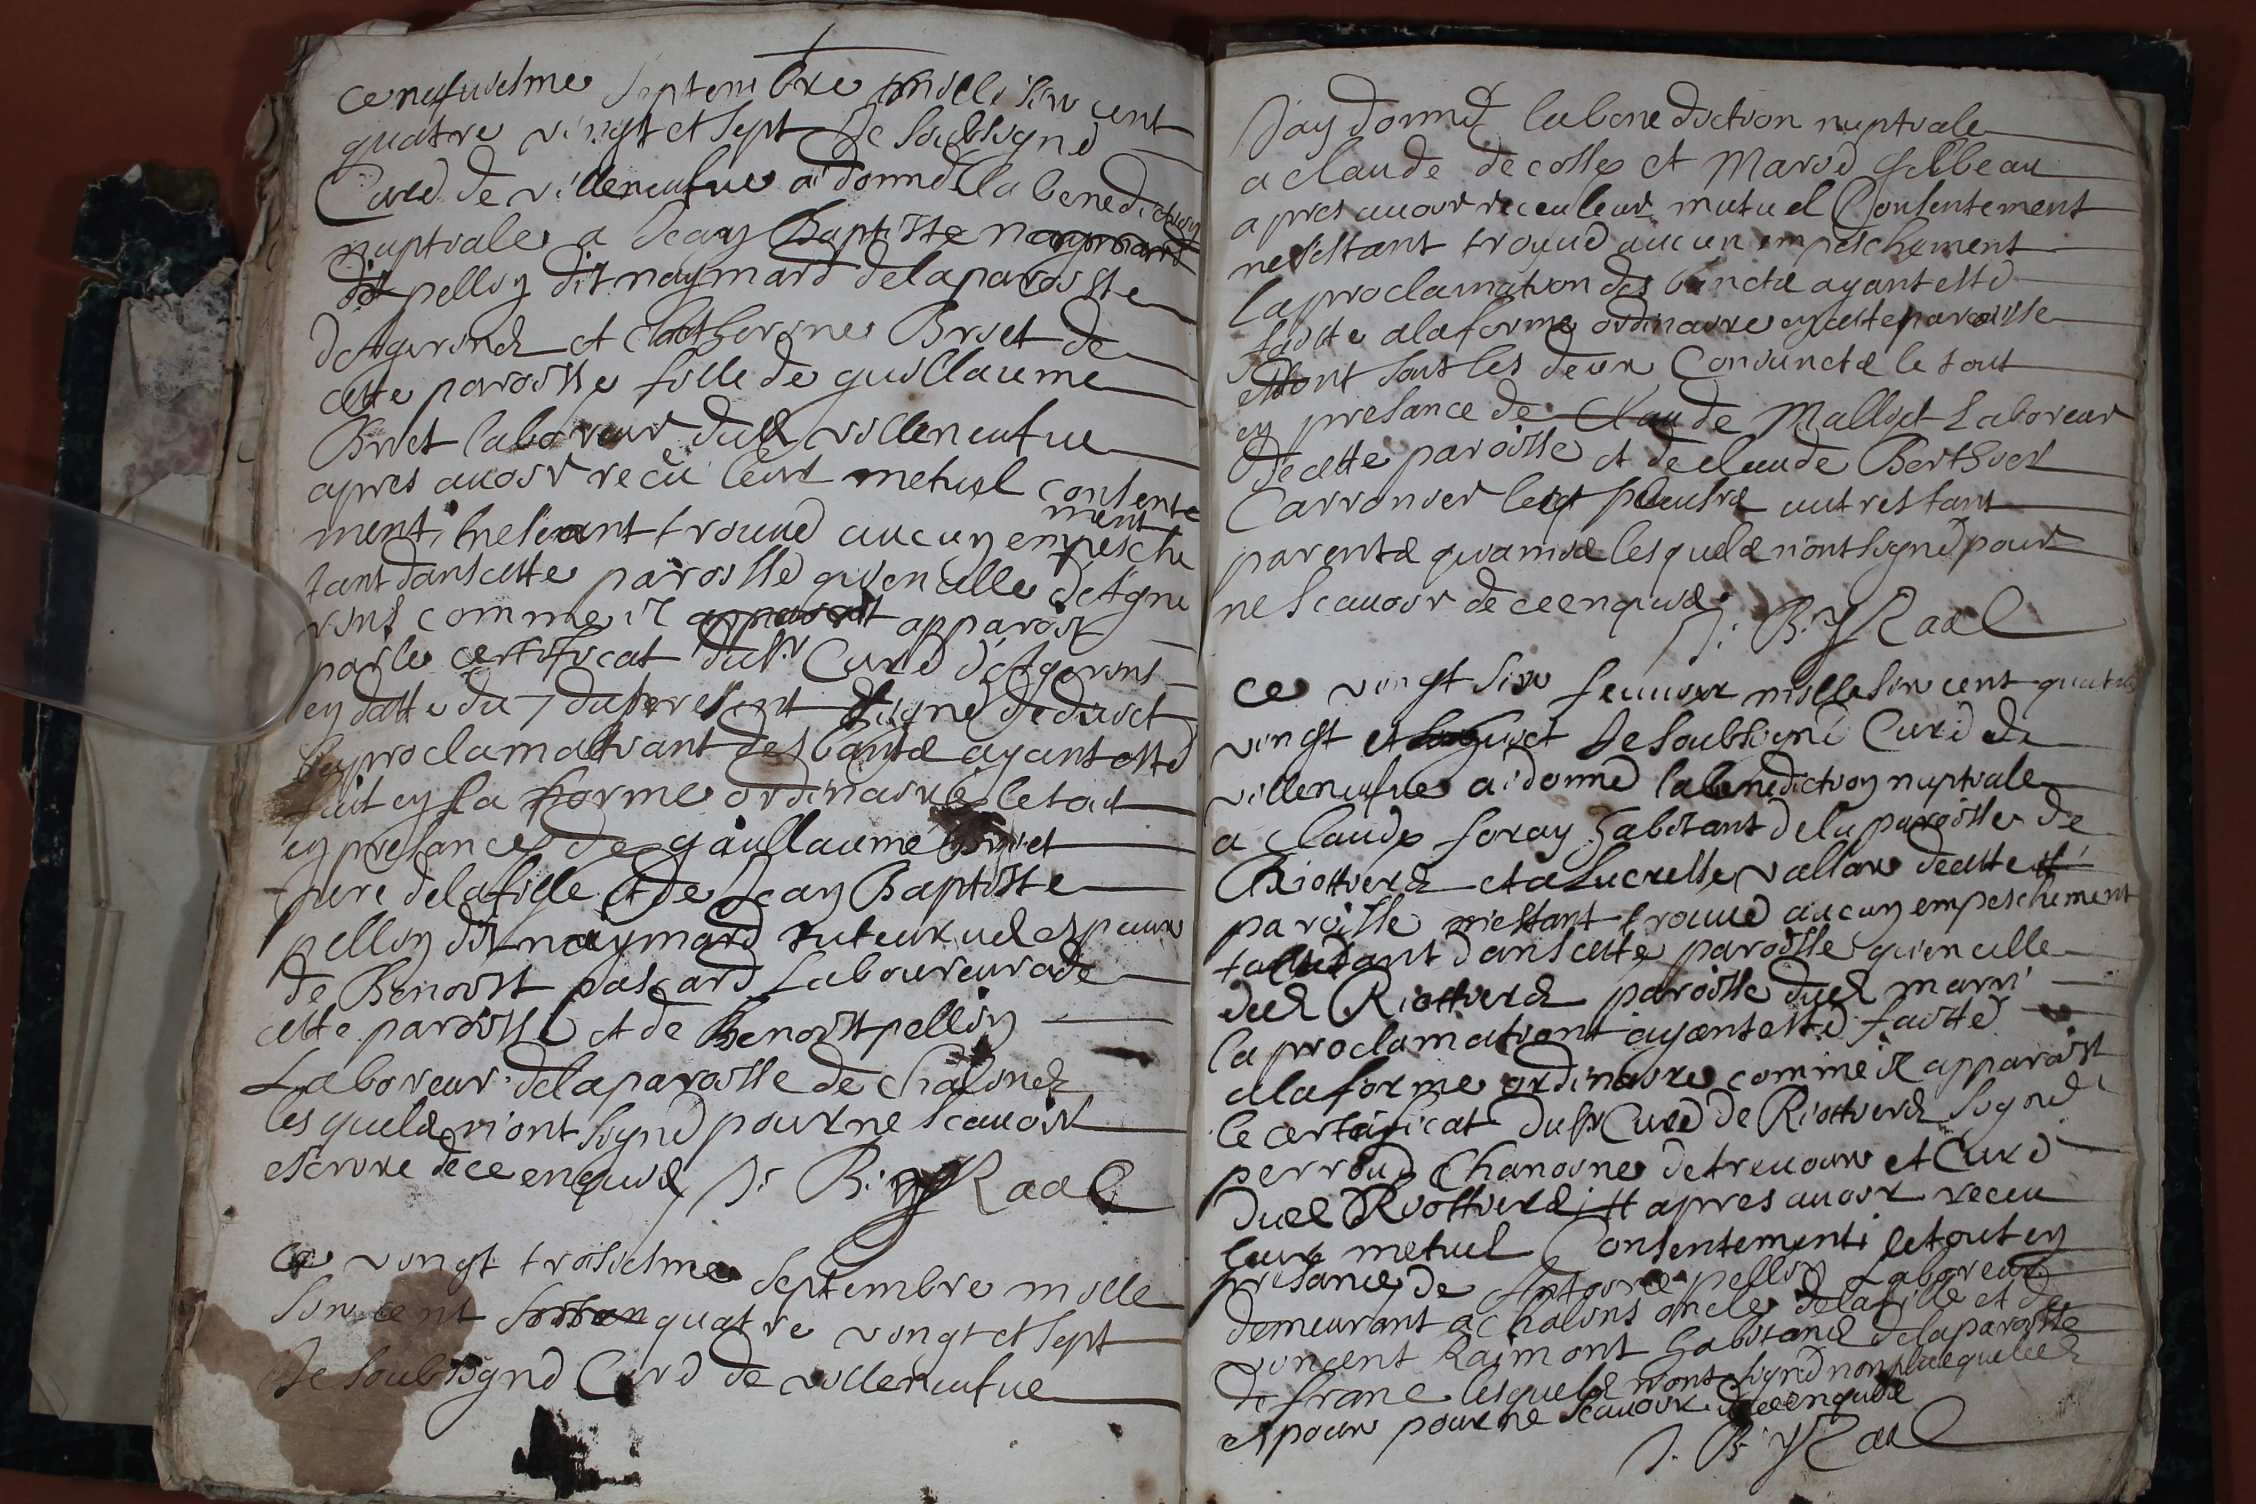 ce neufviesme Septembre mille six cent
quatre vingt et sept Je soubsigné
Curé de villeneufve ai donné la benediction
nuptiale a Jean Baptiste naymard
dit pellin dit naymard de la paroisse
et Catherine Briet de
cette paroisse fille de guillaume
Briet laboreur dud villeneufve
apres avoir recu leur metuel consente
ment, ne sestant trouvé aucun empesche
ment
tant dans cette paroisse qu'en celle
comme il apparoit
par le certificat du Sr Curé
en datte du 7 du present signé
la proclamation des bans ayant esté
fait en la forme ordinaire le tout
en presance de guillaume Briet
pere de la fille et de Jean Baptiste
pellin dit naymard
de Benoist pascard Laboureur de
cette paroisse et de Benoist pellin
Laboreur de la paroisse de Chalins
lesquels n'ont signé pour ne scavoir
escrire de ce enquis J. B. Raal
ce vingt troisiesme Septembre mille
six cent quatre vingt et sept
Je soubsigné Curé de villeneufve
J'ay donné la benediction nuptiale
a claude decosse et Marie
apres avoir receu leur mutuel Consentement
ne s'estant trouvé aucun empeschement
la proclamation des bancts ayant esté
faitte a la forme ordinaire en cette paroisse
estant tous les deux Conjuncts le tout
en presance de Claude Malliet Laboreur
de cette paroisse et de claude Berthier
Carronier et plusieurs autres tant
parents qu'amis lesquels n'ont signé pour
ne scavoir de ce enquis. J. B. Raal
ce vingt six fevvrier mille six cent quatre
vingt et huict Je soubsigné Curé de
villeneufve ai donné la benediction nuptiale
a Claude foray habitant de la paroisse de
Riottiers et a Lucresse vallar de cette
paroisse n'estant trouvé aucun empeschement
tant dans cette paroisse qu'en celle
dud Riottiers paroisse dud marri
la proclamation ayant esté faitte
a la forme ordinaire comme il apparoist
le certificat du Sr Curé de Riottiers signé
perroud Chanoine de trevoux et Curé
dud Riottiers et apres avoir receu
leur metuel Consentement le tout en
presance de Antoine pellin Laboreur
demeurant a Chalins oncle de la fille et de
vincent Raimont habitand de la paroisse
de franc lesquels n'ont signé non plus que led
espoux pour ne scavoir de ce enquis
J. B. Raal